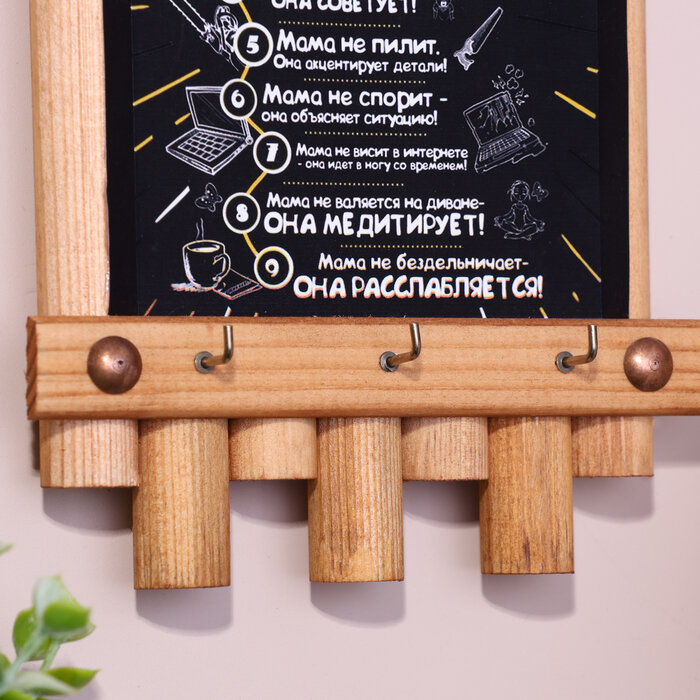 ОНА СОВЕТУЕТ!
5 Мама не пилит.
Она акцентирует детали!
6 Мама не спорит -
она объясняет ситуацию!
7 Мама не висит в интернете
- она идет в ногу со временем!
8 Мама не валяется на диване-
ОНА МЕДИТИРУЕТ!
9 Мама не бездельничает-
ОНА РАССЛАБЛЯЕТСЯ!